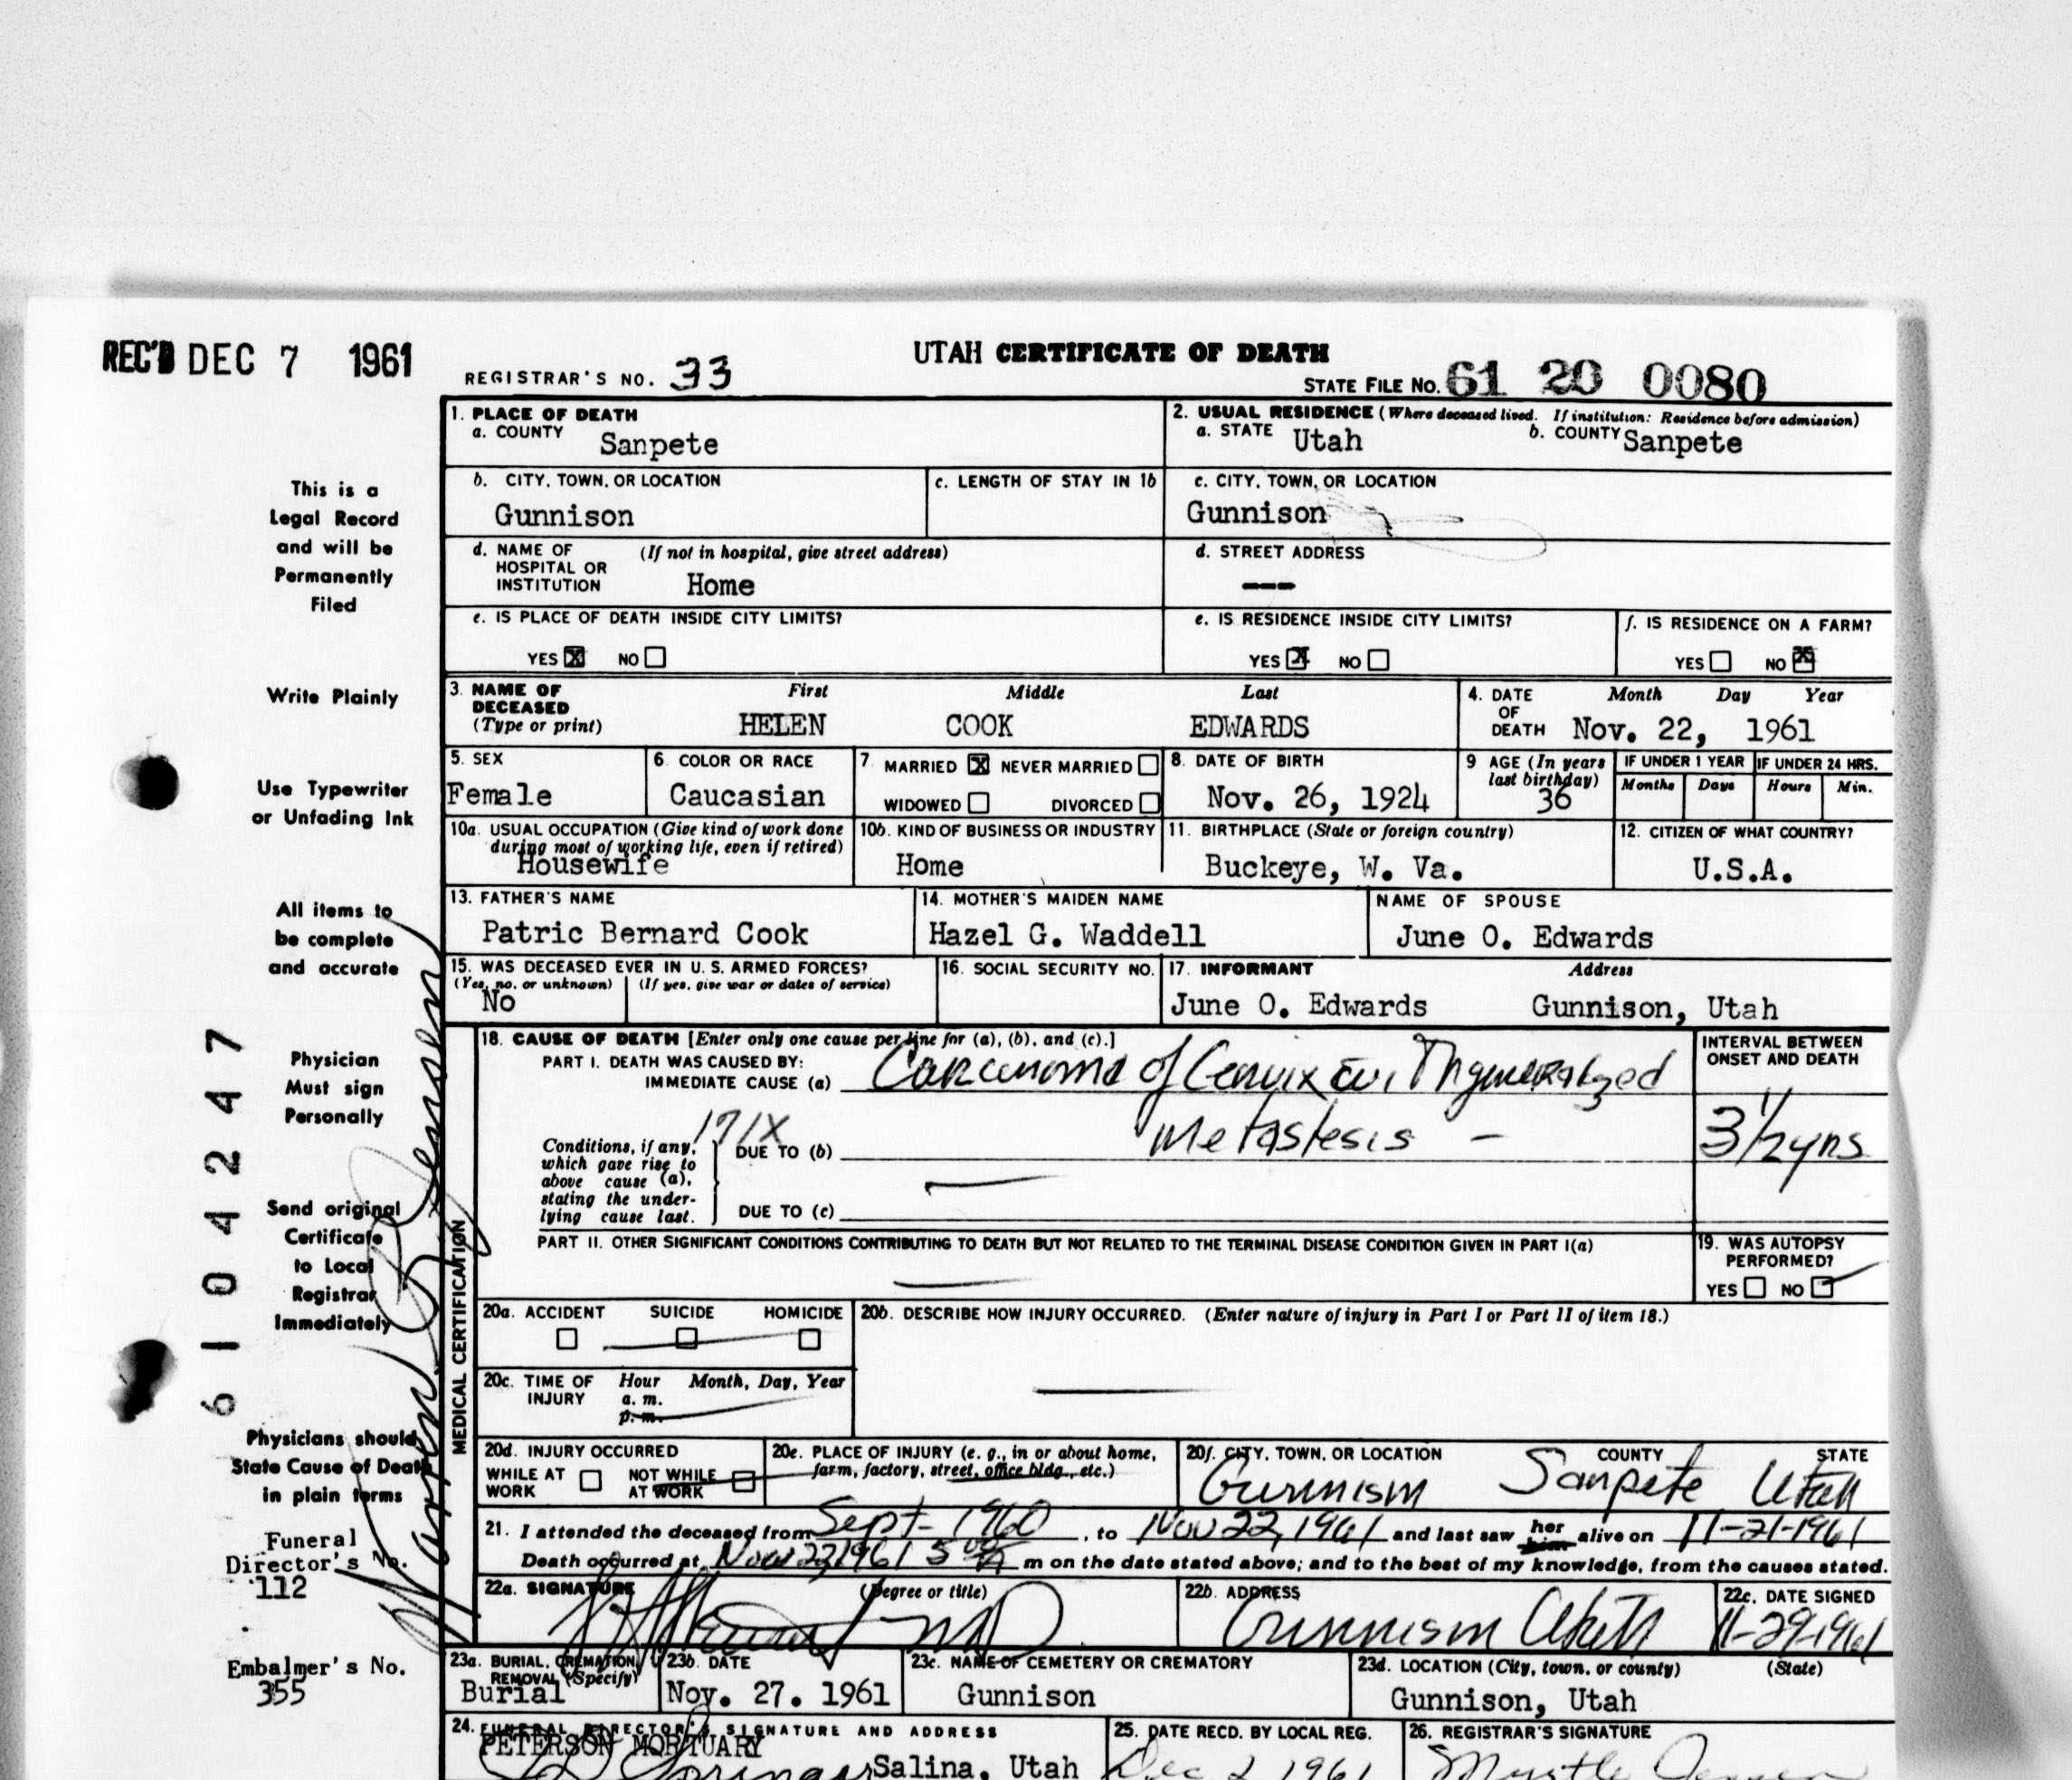 REC'D DEC 7 1961
UTAH CERTIFICATE OF DEATH
REGISTRAR'S NO. 33
STATE FILE No. 61 20 0080
1. PLACE OF DEATH
a. COUNTY Sanpete
2. USUAL RESIDENCE (Where deceased lived. If institution: Residence before admission)
a. STATE Utah b. COUNTY Sanpete
b. CITY, TOWN, OR LOCATION
Gunnison
c. LENGTH OF STAY IN 1b
c. CITY, TOWN, OR LOCATION
Gunnison
d. NAME OF (If not in hospital, give street address)
HOSPITAL OR
INSTITUTION Home
d. STREET ADDRESS
---
e. IS PLACE OF DEATH INSIDE CITY LIMITS?
YES X NO
e. IS RESIDENCE INSIDE CITY LIMITS?
YES X NO
f. IS RESIDENCE ON A FARM?
YES NO X
3. NAME OF DECEASED (Type or print)
First Middle Last
HELEN COOK EDWARDS
4. DATE OF DEATH
Month Day Year
Nov. 22, 1961
5. SEX
Female
6. COLOR OR RACE
Caucasian
7 MARRIED X NEVER MARRIED
WIDOWED DIVORCED
8. DATE OF BIRTH
Nov. 26, 1924
9 AGE (In years
last birthday)
36
IF UNDER 1 YEAR
Months Days
IF UNDER 24 HRS.
Hours Min.
10a. USUAL OCCUPATION (Give kind of work done
during most of working life, even if retired)
Housewife
10b. KIND OF BUSINESS OR INDUSTRY
Home
11. BIRTHPLACE (State or foreign country)
Buckeye, W. Va.
12. CITIZEN OF WHAT COUNTRY?
U.S.A.
13. FATHER'S NAME
Patric Bernard Cook
14. MOTHER'S MAIDEN NAME
Hazel G. Waddell
NAME OF SPOUSE
June O. Edwards
15. WAS DECEASED EVER IN U.S. ARMED FORCES?
(Yes, no, or unknown) (If yes, give war or dates of service)
No
16. SOCIAL SECURITY NO.
17. INFORMANT Address
June O. Edwards Gunnison, Utah
MEDICAL CERTIFICATION
18. CAUSE OF DEATH [Enter only one cause per line for (a), (b), and (c).]
PART I. DEATH WAS CAUSED BY:
IMMEDIATE CAUSE (a) Carcenoma of Cervix generalized
171X
Conditions, if any,
which gave rise to
above cause (a),
stating the under-
lying cause last.
DUE TO (b) Metastesis -
DUE TO (c)
INTERVAL BETWEEN
ONSET AND DEATH
3 1/2 yrs
PART II. OTHER SIGNIFICANT CONDITIONS CONTRIBUTING TO DEATH BUT NOT RELATED TO THE TERMINAL DISEASE CONDITION GIVEN IN PART I(a)
19. WAS AUTOPSY
PERFORMED?
YES NO
20a. ACCIDENT SUICIDE HOMICIDE
20b. DESCRIBE HOW INJURY OCCURRED. (Enter nature of injury in Part I or Part II of item 18.)
20c. TIME OF INJURY
Hour Month, Day, Year
a. m.
p. m.
20d. INJURY OCCURRED
WHILE AT WORK NOT WHILE AT WORK
20e. PLACE OF INJURY (e. g., in or about home,
farm, factory, street, office bldg., etc.)
20f. CITY, TOWN, OR LOCATION COUNTY STATE
Gunnison Sanpete Utah
21. I attended the deceased from Sept- 1960, to Nov 22, 1961 and last saw her him alive on 11-21-1961
Death occurred at Nov 22, 1961 5 m on the date stated above; and to the best of my knowledge, from the causes stated.
22a. SIGNATURE (Degree or title)
MD
22b. ADDRESS
Gunnison Utah
22c. DATE SIGNED
11-29-1961
23a. BURIAL, CREMATION,
REMOVAL (Specify)
Burial
23b. DATE
Nov. 27. 1961
23c. NAME OF CEMETERY OR CREMATORY
Gunnison
23d. LOCATION (City, town, or county) (State)
Gunnison, Utah
24. FUNERAL DIRECTOR'S SIGNATURE AND ADDRESS
PETERSON MORTUARY
Salina, Utah
25. DATE RECD. BY LOCAL REG.
Dec 2 1961
26. REGISTRAR'S SIGNATURE
Myrtle
This is a
Legal Record
and will be
Permanently
Filed
Write Plainly
Use Typewriter
or Unfading Ink
All items to
be complete
and accurate
Physician
Must sign
Personally
Send original
Certificate
to Local
Registrar
Immediately
Physicians should
State Cause of Death
in plain terms
Funeral
Director's No.
112
Embalmer's No.
355
6104247